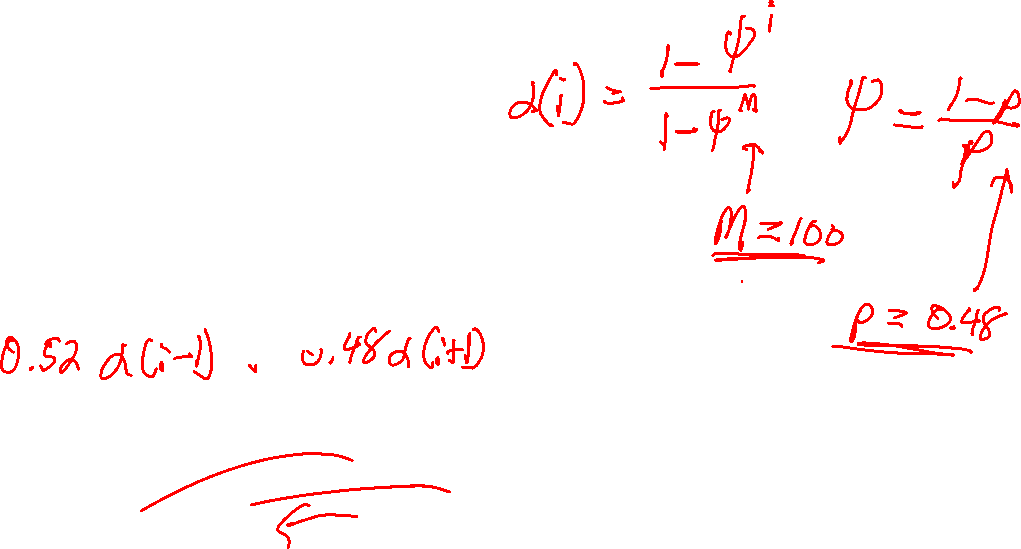 α(i) = (1 - ψ^i) / (1 - ψ^M)
ψ = (1 - p) / p
M = 100
p = 0.48
0.52 α(i-1) . 0.48 α(i+1)